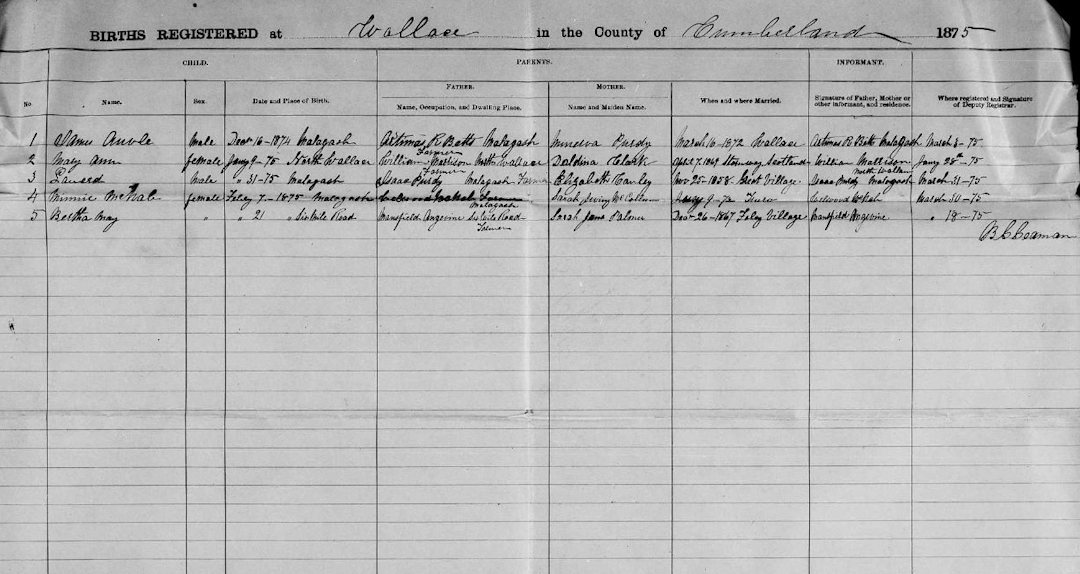 BIRTHS REGISTERED at Wallace in the County of Cumberland 1875
CHILD. PARENTS. INFORMANT.
No Name. Sex. Date and Place of Birth. FATHER. Name, Occupation, and Dwelling Place. MOTHER. Name and Maiden Name. When and where Married. Signature of Father, Mother or other informant, and residence. Where registered and Signature of Deputy Registrar.
1 male Decr 16-1874 Malagash R Betts Malagash Farmer Minerva Purdy March 16-1872 Wallace R Betts Malagash March 8-75
2 Mary Ann female Jany 9-75 North Wallace William Mattison North Wallace Farmer Clark April 7. Scotland William Mattison North Wallace Jany 28th-75
3 male " 31-75 Malagash Isaac Purdy Malagash Farmer Elizabeth Nov 25-1858 Village Isaac Purdy Malagash March-31-75
4 Minnie McNab female 7-1875 Malagash Farmer Malagash Sarah 9-72 Truro McNab March 30-75
5 Bertha May " " 21 " Road Mansfield Angevine Road Farmer Sarah Jane Palmer Decr 26-1867 Village Mansfield Angevine " 18-75